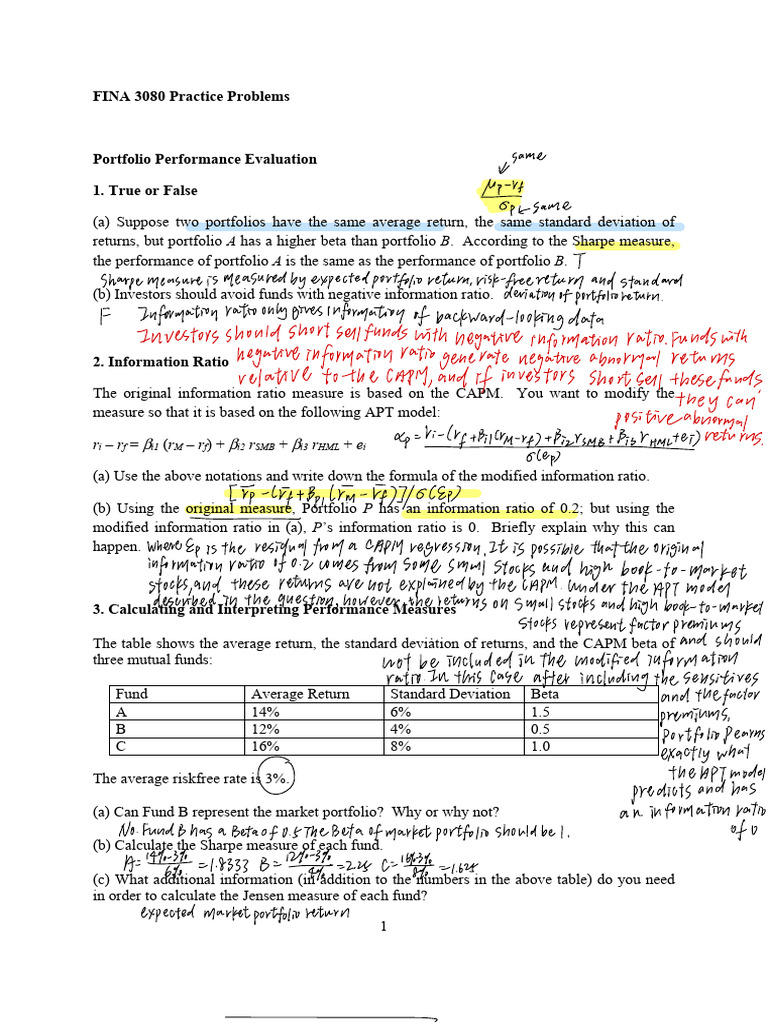 FINA 3080 Practice Problems
Portfolio Performance Evaluation
same
1. True or False
μp-rf
σp ← same
(a) Suppose two portfolios have the same average return, the same standard deviation of
returns, but portfolio A has a higher beta than portfolio B. According to the Sharpe measure,
the performance of portfolio A is the same as the performance of portfolio B. T
Sharpe measure is measured by expected portfolio return, risk-free return and standard
(b) Investors should avoid funds with negative information ratio. deviation of portfolio return.
F Information ratio only gives information of backward-looking data
Investors should short sell funds with negative information ratio. Funds with
2. Information Ratio negative information ratio generate negative abnormal returns
relative to the CAPM, and if investors short sell these funds
The original information ratio measure is based on the CAPM. You want to modify the they can
measure so that it is based on the following APT model: positive abnormal
returns.
ri – rf = βi1 (rM – rf) + βi2 rSMB + βi3 rHML + ei
αp = ri-(rf+βi1(rM-rf)+βi2rSMB+βi3rHML+ei)
σ(ep)
(a) Use the above notations and write down the formula of the modified information ratio.
[r̄p-(r̄f+βp1(r̄M-r̄f)]/σ(εp)
(b) Using the original measure, Portfolio P has an information ratio of 0.2; but using the
modified information ratio in (a), P's information ratio is 0. Briefly explain why this can
happen. where εp is the residual from a CAPM regression, It is possible that the original
information ratio of 0.2 comes from some small stocks and high book-to-market
stocks, and these returns are not explained by the CAPM. Under the APT model
described in the question, however, the returns on small stocks and high book-to-market
3. Calculating and Interpreting Performance Measures
stocks represent factor premiums
The table shows the average return, the standard deviation of returns, and the CAPM beta of and should
three mutual funds: not be included in the modified information
ratio. In this case after including the sensitives
Fund Average Return Standard Deviation Beta and the factor
A 14% 6% 1.5 premiums,
B 12% 4% 0.5 Portfolio P earns
C 16% 8% 1.0 exactly what
The average riskfree rate is 3%. the APT model
predicts and has
(a) Can Fund B represent the market portfolio? Why or why not? an information ratio
of 0
No. Fund B has a Beta of 0.5 The Beta of market portfolio should be 1.
(b) Calculate the Sharpe measure of each fund.
A= 14%-3% / 6% =1.8333 B= 12%-3% / 4% =2.25 C= 16%-3% / 8% =1.625
(c) What additional information (in addition to the numbers in the above table) do you need
in order to calculate the Jensen measure of each fund?
expected market portfolio return
1